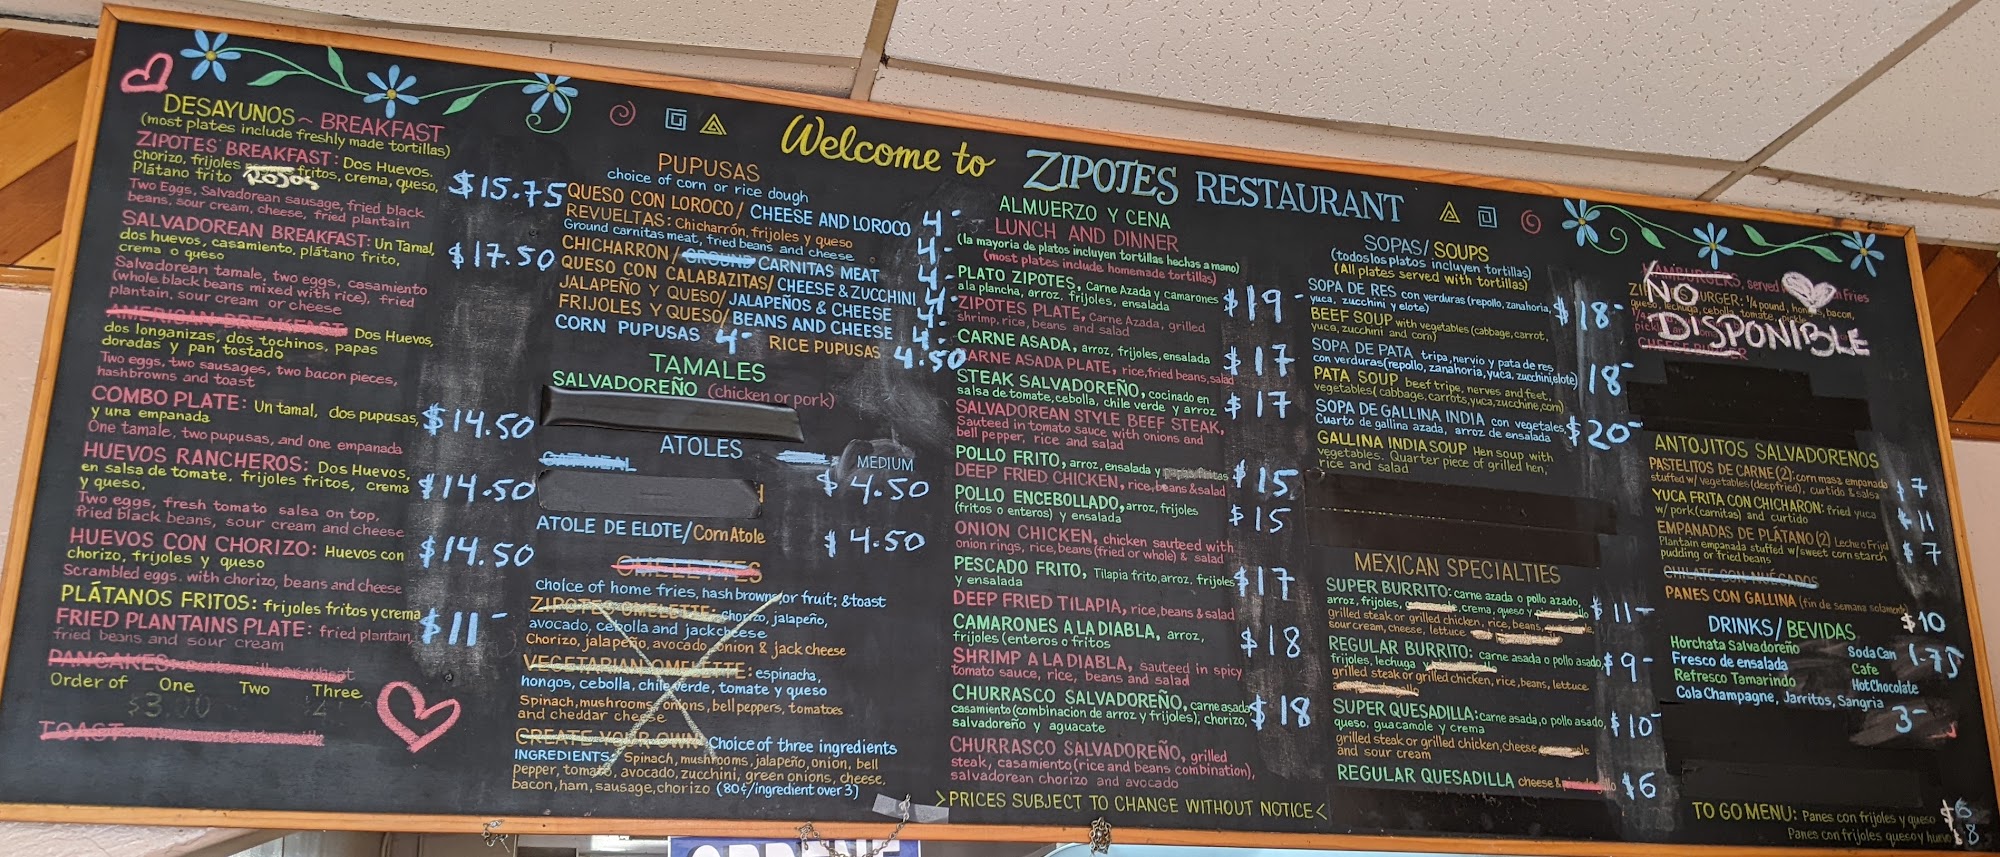 Welcome to ZIPOTES RESTAURANT
DESAYUNOS ~ BREAKFAST
(most plates include freshly made tortillas)
ZIPOTES BREAKFAST: Dos Huevos.
Chorizo, frijoles fritos, crema, queso,
Plátano frito ROJOS
$15.75
Two Eggs, Salvadorean sausage, fried black
beans, sour cream, cheese, fried plantain
SALVADOREAN BREAKFAST: Un Tamal,
dos huevos, casamiento, plátano frito,
crema o queso
$17.50
Salvadorean tamale, two eggs, casamiento
(whole black beans mixed with rice), fried
plantain, sour cream or cheese
AMERICAN BREAKFAST: Dos Huevos,
dos longanizas, dos tochinos, papas
doradas y pan tostado
Two eggs, two sausages, two bacon pieces,
hashbrowns and toast
COMBO PLATE: Un tamal, dos pupusas,
y una empanada
$14.50
One tamale, two pupusas, and one empanada
HUEVOS RANCHEROS: Dos Huevos,
en salsa de tomate, frijoles fritos, crema
y queso,
$14.50
Two eggs, fresh tomato salsa on top,
fried black beans, sour cream and cheese
HUEVOS CON CHORIZO: Huevos con
chorizo, frijoles y queso
$14.50
Scrambled eggs with chorizo, beans and cheese
PLÁTANOS FRITOS: frijoles fritos y crema
FRIED PLANTAINS PLATE: fried plantain,
fried beans and sour cream
$11-
PANCAKES:
Order of One Two Three
$3.00
TOAST
PUPUSAS
choice of corn or rice dough
QUESO CON LOROCO/ CHEESE AND LOROCO 4-
REVUELTAS: Chicharrón, frijoles y queso
Ground carnitas meat, fried beans and cheese 4-
CHICHARRON/ GROUND CARNITAS MEAT 4-
QUESO CON CALABAZITAS/ CHEESE & ZUCCHINI 4-
JALAPEÑO Y QUESO/ JALAPEÑOS & CHEESE 4-
FRIJOLES Y QUESO/ BEANS AND CHEESE 4-
CORN PUPUSAS 4- RICE PUPUSAS 4.50
TAMALES
SALVADOREÑO (chicken or pork)
ATOLES
OATMEAL MEDIUM
$4.50
ATOLE DE ELOTE/ Corn Atole $4.50
OMELETTES
choice of home fries, hash browns, or fruit; & toast
ZIPOTES OMELETTE: chorizo, jalapeño,
avocado, cebolla and jack cheese
Chorizo, jalapeño, avocado, onion & jack cheese
VEGETARIAN OMELETTE: espinacha,
hongos, cebolla, chile verde, tomate y queso
Spinach, mushrooms, onions, bell peppers, tomatoes
and cheddar cheese
CREATE YOUR OWN Choice of three ingredients
INGREDIENTS: Spinach, mushrooms, jalapeño, onion, bell
pepper, tomato, avocado, zucchini, green onions, cheese,
bacon, ham, sausage, chorizo (80¢/ingredient over 3)
ALMUERZO Y CENA
LUNCH AND DINNER
(la mayoria de platos incluyen tortillas hechas a mano)
(most plates include homemade tortillas)
PLATO ZIPOTES, Carne Azada y camarones
a la plancha, arroz, frijoles, ensalada
$19-
ZIPOTES PLATE, Carne Azada, grilled
shrimp, rice, beans and salad
CARNE ASADA, arroz, frijoles, ensalada $17
CARNE ASADA PLATE, rice, fried beans, salad
STEAK SALVADOREÑO, cocinado en
salsa de tomate, cebolla, chile verde y arroz
$17
SALVADOREAN STYLE BEEF STEAK,
Sauteed in tomato sauce with onions and
bell pepper, rice and salad
POLLO FRITO, arroz, ensalada y papas fritas $15
DEEP FRIED CHICKEN, rice, beans & salad
POLLO ENCEBOLLADO, arroz, frijoles
(fritos o enteros) y ensalada
$15
ONION CHICKEN, chicken sauteed with
onion rings, rice, beans (fried or whole) & salad
PESCADO FRITO, Tilapia frito, arroz, frijoles
y ensalada
$17
DEEP FRIED TILAPIA, rice, beans & salad
CAMARONES A LA DIABLA, arroz,
frijoles (enteros o fritos)
$18
SHRIMP A LA DIABLA, sauteed in spicy
tomato sauce, rice, beans and salad
CHURRASCO SALVADOREÑO, carne asada
casamiento (combinacion de arroz y frijoles), chorizo,
salvadoreño y aguacate
$18
CHURRASCO SALVADOREÑO, grilled
steak, casamiento (rice and beans combination),
salvadorean chorizo and avocado
>PRICES SUBJECT TO CHANGE WITHOUT NOTICE<
SOPAS/ SOUPS
(todos los platos incluyen tortillas)
(All plates served with tortillas)
SOPA DE RES con verduras (repollo, zanahoria,
yuca, zucchini y elote)
$18-
BEEF SOUP with vegetables (cabbage, carrot,
yuca, zucchini and corn)
SOPA DE PATA tripa, nervio y pata de res
con verduras (repollo, zanahoria, yuca, zucchini, elote)
18-
PATA SOUP beef tripe, nerves and feet,
vegetables (cabbage, carrots, yuca, zucchine, corn)
SOPA DE GALLINA INDIA con vegetales,
Cuarto de gallina azada, arroz de ensalada
$20-
GALLINA INDIA SOUP Hen soup with
vegetables. Quarter piece of grilled hen,
rice and salad
MEXICAN SPECIALTIES
SUPER BURRITO: carne azada o pollo azado,
arroz, frijoles, crema, queso y
$11-
grilled steak or grilled chicken, rice, beans,
sour cream, cheese, lettuce
REGULAR BURRITO: carne asada o pollo asado,
frijoles, lechuga y
$9-
grilled steak or grilled chicken, rice, beans, lettuce
SUPER QUESADILLA: carne asada, o pollo asado,
queso, guacamole y crema
$10-
grilled steak or grilled chicken, cheese
and sour cream
REGULAR QUESADILLA cheese & $6
HAMBURGERS, served fries
BURGER: 1/4 pound, bacon,
queso, lechuga, cebolla, tomate,
NO DISPONIBLE
ANTOJITOS SALVADOREÑOS
PASTELITOS DE CARNE (2): corn masa empanada
stuffed w/ vegetables (deep fried), curtido & salsa
$7
YUCA FRITA CON CHICHARON: fried yuca
w/ pork (carnitas) and curtido
$11
EMPANADAS DE PLÁTANO (2) Leche o Frijol
Plantain empanada stuffed w/ sweet corn starch
pudding or fried beans
$7
CHILATE CON NUEGADOS
PANES CON GALLINA (fin de semana solamente)
$10
DRINKS/ BEVIDAS
Horchata Salvadoreño Soda Can 1.75
Fresco de ensalada Cafe
Refresco Tamarindo Hot Chocolate
Cola Champagne, Jarritos, Sangria
3-
TO GO MENU: Panes con frijoles y queso $6
Panes con frijoles queso y huevo $8